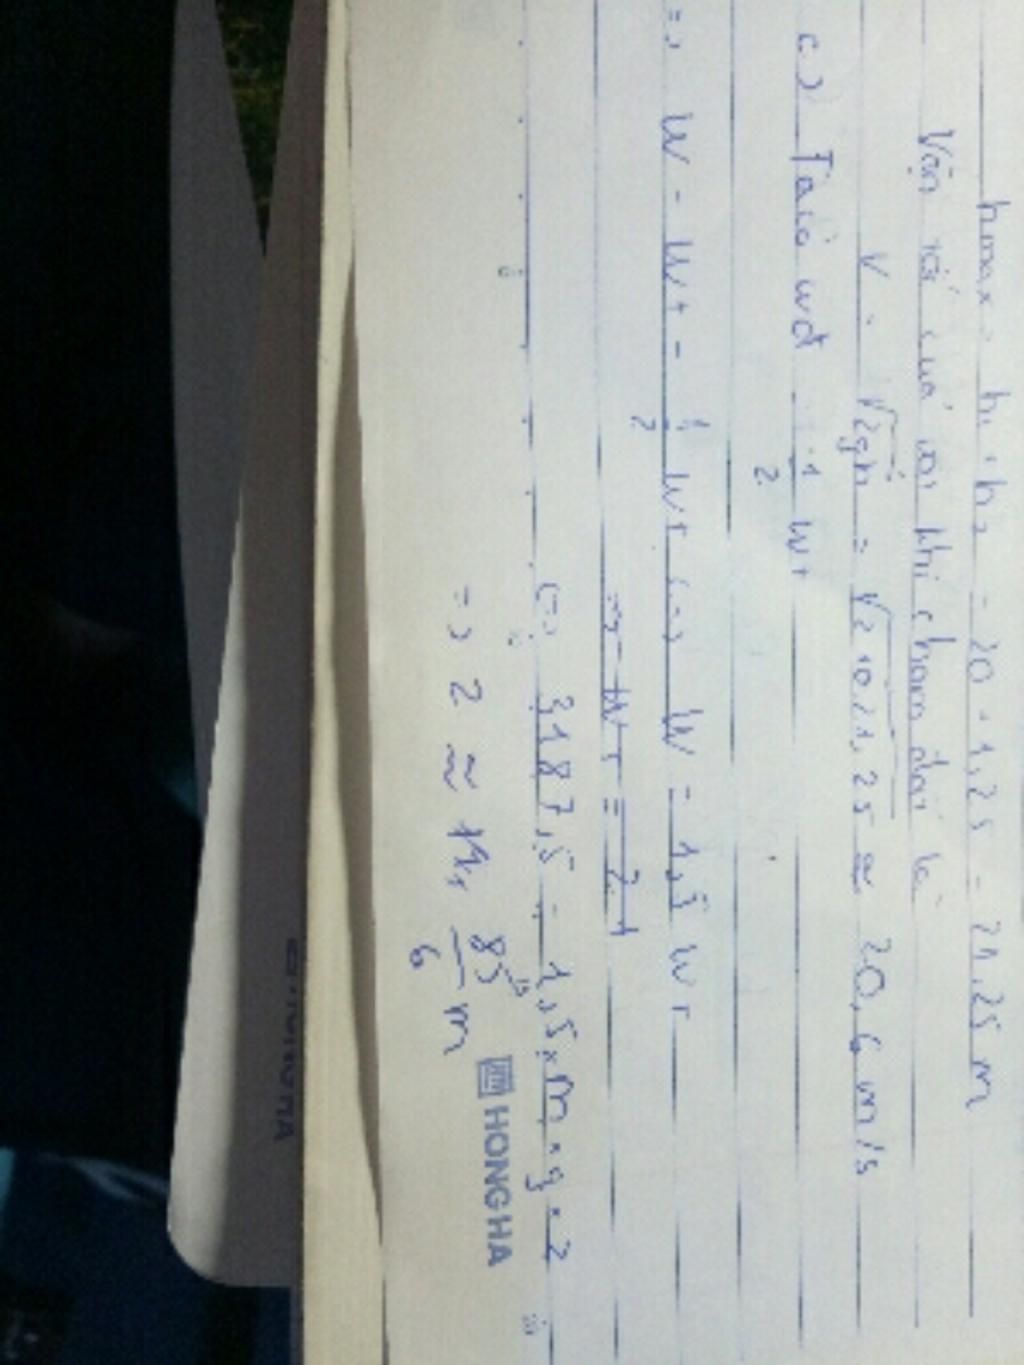 hmax = h1 + h2 = 20 + 1,25 = 21,25 m
Vận tốc của vật khi chạm đất là
V = √2gh = √2.10.21,25 ≈ 20,6 m/s
c) Tại wđ = 1/2 wt
=> W = Wt + 1/2 Wt <=> W = 1,5 Wt
<=> 3187,5 = 1,5 × m × g × z
=> z ≈ 14, 85/6 m
HONG HA